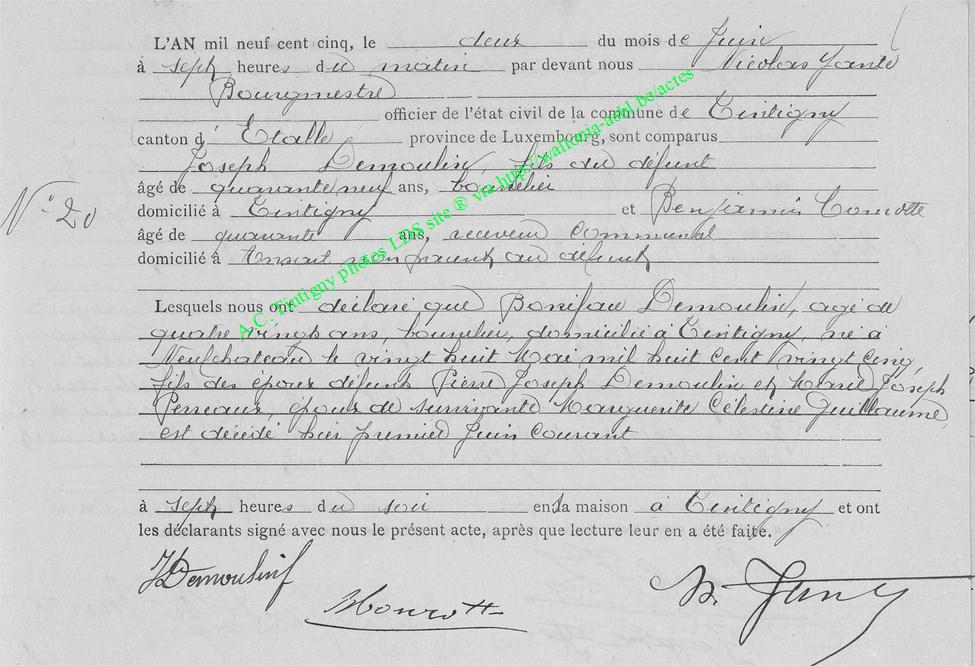 L'AN mil neuf cent cinq, le deux du mois de Juin
à sept heures du matin par devant nous Nicolas
Bourgmestre
officier de l'état civil de la commune de Tintigny
canton d' Etalle province de Luxembourg, sont comparus
Joseph Demoulin, fils du défunt
âgé de quarante neuf ans, tourelier
domicilié à Tintigny et Benjamin
âgé de quarante ans, receveur Communal
domicilié à Ansart non parent au défunt
N° 20
Lesquels nous ont déclaré que Boniface Demoulin, agé de
quatre vingts ans, domicilié à Tintigny, né à
Neufchateau le vingt huit Mai mil huit cent vingt cinq,
fils des époux défunts Pierre Joseph Demoulin et Marie Joseph
Perneaux, époux de survivante Marguerite Célestine Guillaume,
est décédé hier premier Juin courant
à sept heures du soir en sa maison à Tintigny et ont
les déclarants signé avec nous le présent acte, après que lecture leur en a été faite.
JDemoulinf
A.C. Tintigny photos LDS site ® via http://wallonia-asbl.be/actes